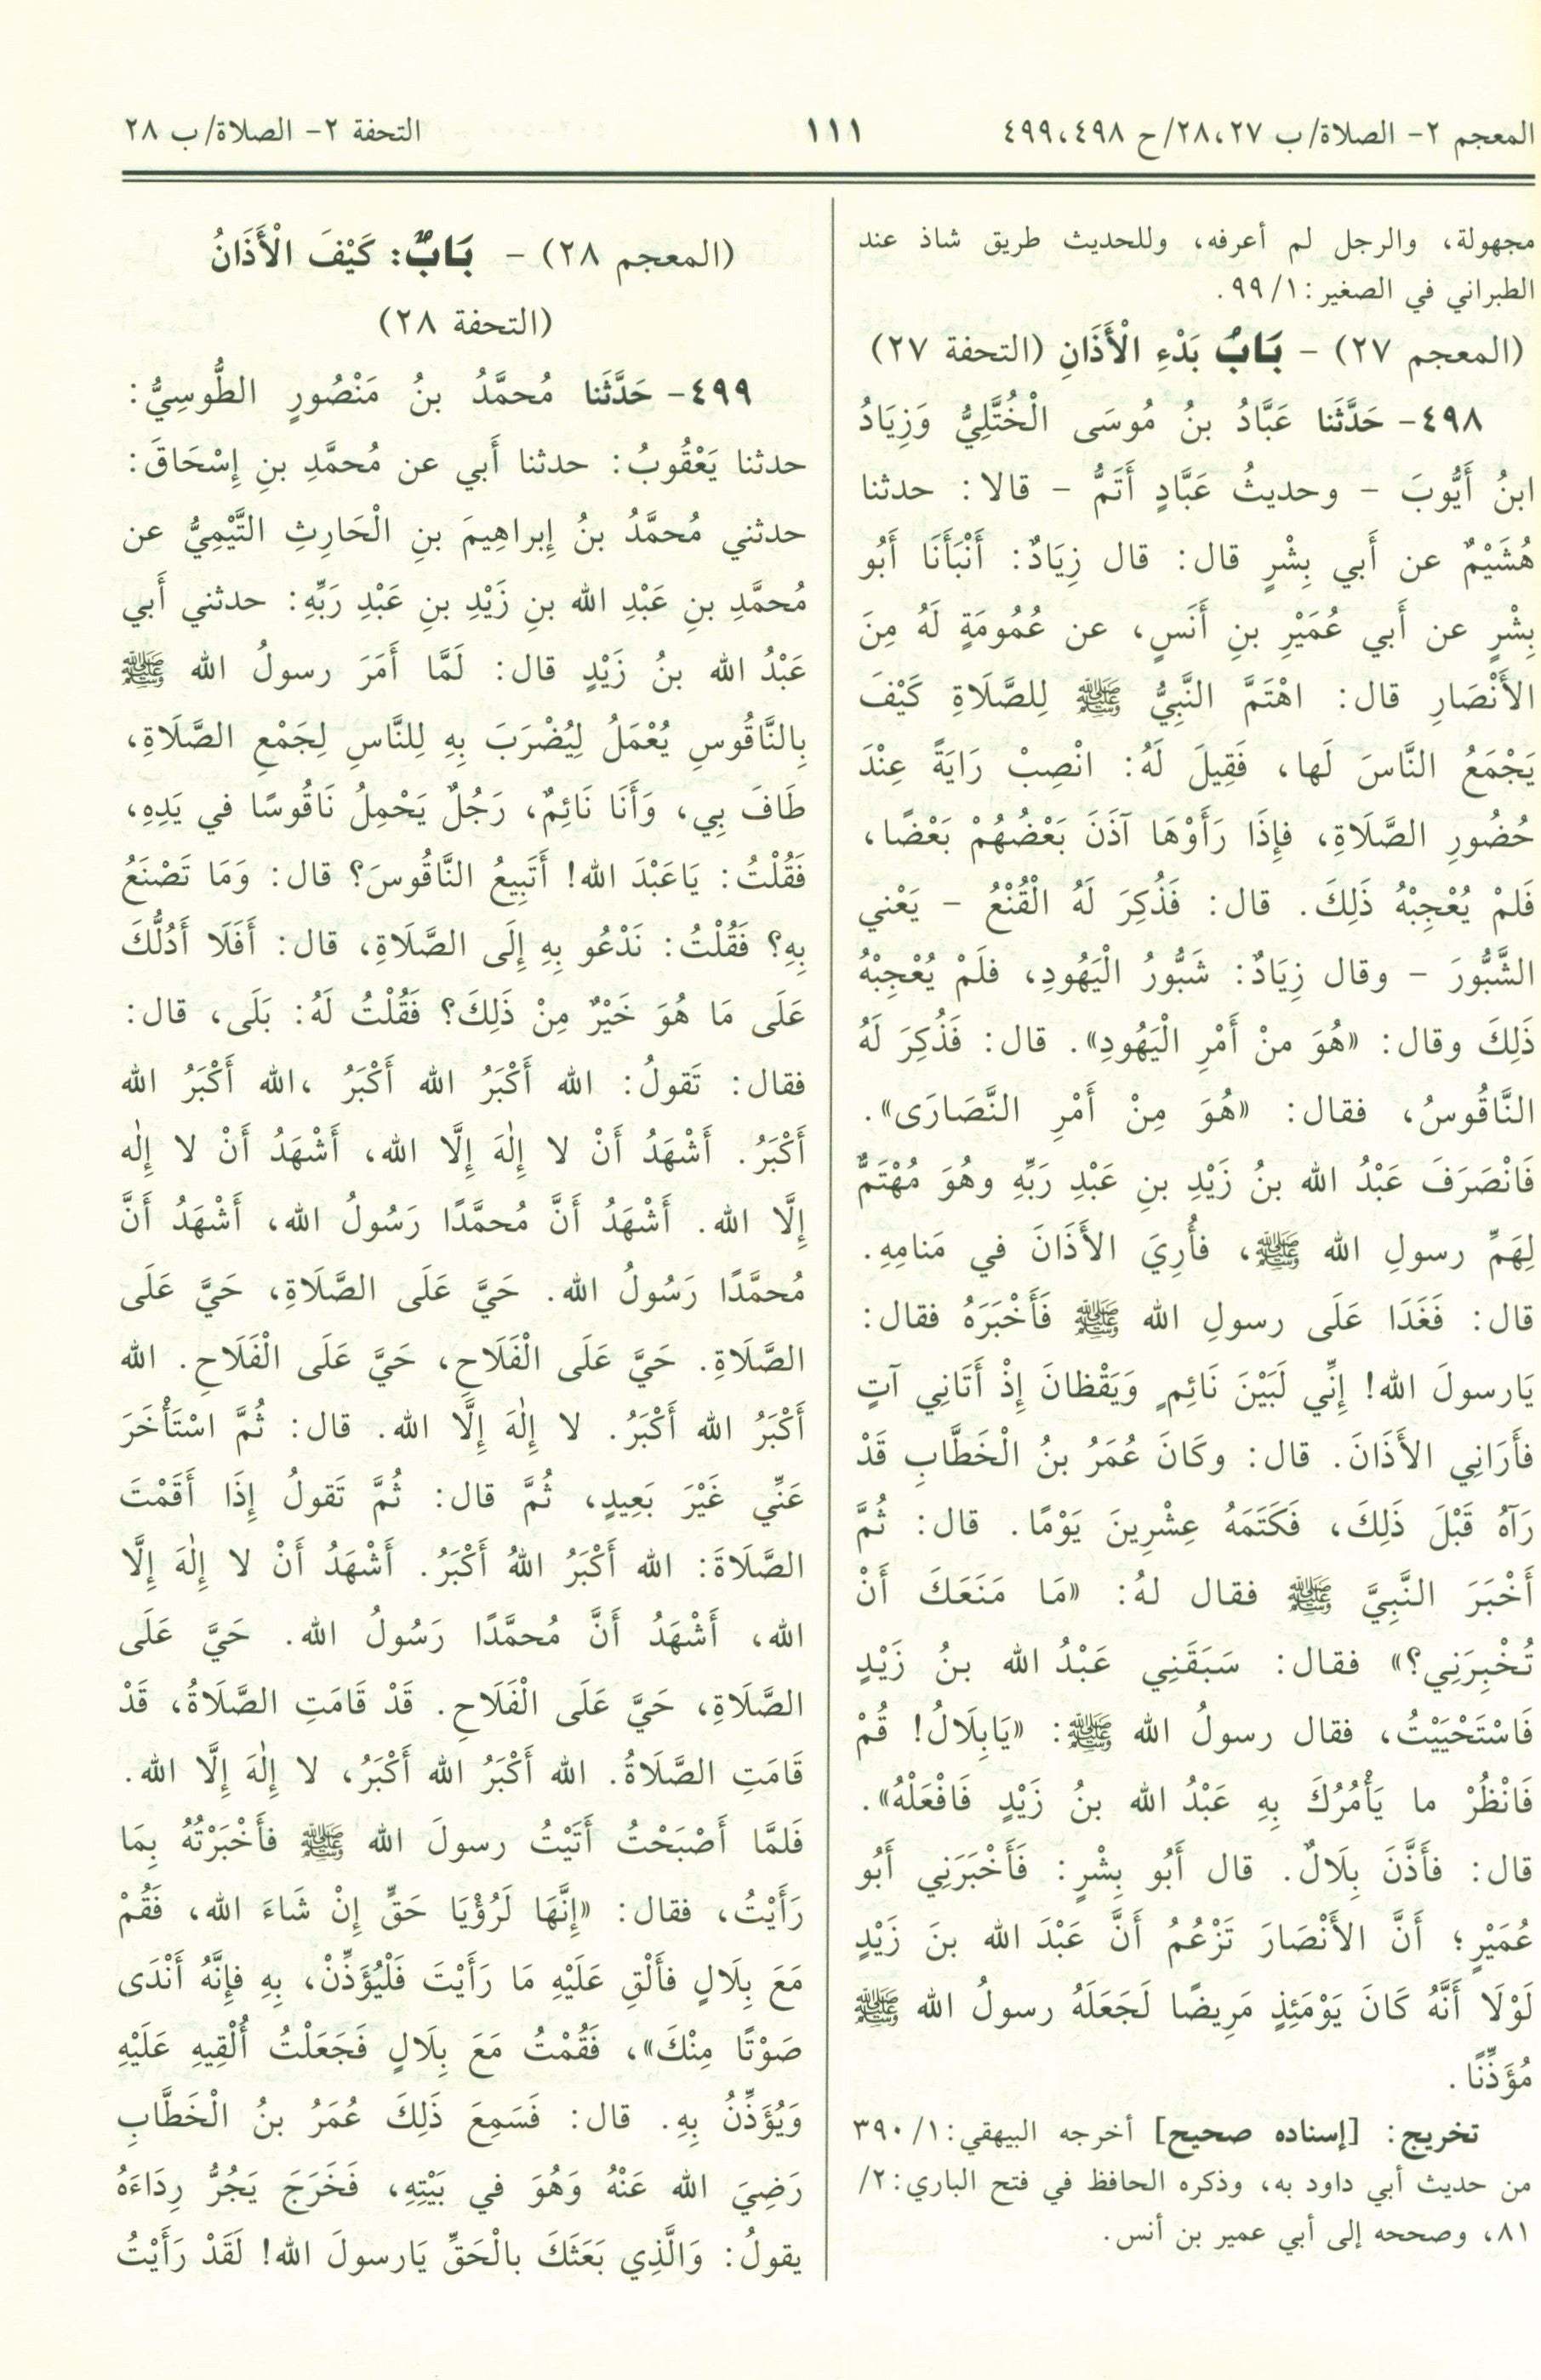 المعجم ٢- الصلاة/ ب ٢٨،٢٧/ح ٤٩٩،٤٩٨
١١١
التحفة ٢- الصلاة/ ب ٢٨
مجهولة، والرجل لم أعرفه، وللحديث طريق شاذ عند
الطبراني في الصغير: ٩٩/١.
(المعجم ٢٧) - بَابُ بَدْءِ الْأَذَانِ (التحفة ٢٧)
٤٩٨- حَدَّثَنا عَبَّادُ بنُ مُوسَى الْخُتَّلِيُّ وَزِيَادُ
ابنُ أَيُّوبَ - وحديثُ عَبَّادٍ أَتَمُّ - قالا: حدثنا
هُشَيْمٌ عن أَبي بِشْرٍ قال: قال زِيَادٌ: أَنْبَأَنَا أَبُو
بِشْرٍ عن أَبي عُمَيْرِ بنِ أَنَسٍ، عن عُمُومَةٍ لَهُ مِنَ
الأَنْصَارِ قال: اهْتَمَّ النَّبِيُّ ﷺ لِلصَّلَاةِ كَيْفَ
يَجْمَعُ النَّاسَ لَها، فَقِيلَ لَهُ: انْصِبْ رَايَةً عِنْدَ
حُضُورِ الصَّلَاةِ، فإِذَا رَأَوْهَا آذَنَ بَعْضُهُمْ بَعْضًا،
فَلمْ يُعْجِبْهُ ذَلِكَ. قال: فَذُكِرَ لَهُ الْقُنْعُ - يَعْني
الشَّبُّورَ - وقال زِيَادٌ: شَبُّورُ الْيَهُودِ، فلَمْ يُعْجِبْهُ
ذَلِكَ وقال: «هُوَ منْ أَمْرِ الْيَهُودِ». قال: فَذُكِرَ لَهُ
النَّاقُوسُ، فقال: «هُوَ مِنْ أَمْرِ النَّصَارَى».
فَانْصَرَفَ عَبْدُ الله بنُ زَيْدِ بنِ عَبْدِ رَبِّهِ وهُوَ مُهْتَمٌّ
لِهَمِّ رسولِ الله ﷺ، فأُرِيَ الأَذَانَ في مَنامِهِ.
قال: فَغَدَا عَلَى رسولِ الله ﷺ فَأَخْبَرَهُ فقال:
يَارسولَ الله! إِنِّي لَبَيْنَ نَائِمٍ وَيَقْظانَ إِذْ أَتَانِي آتٍ
فأَرَانِي الأَذَانَ. قال: وكَانَ عُمَرُ بنُ الْخَطَّابِ قَدْ
رَآهُ قَبْلَ ذَلِكَ، فَكَتَمَهُ عِشْرِينَ يَوْمًا. قال: ثُمَّ
أَخْبَرَ النَّبِيَّ ﷺ فقال لهُ: «مَا مَنَعَكَ أَنْ
تُخْبِرَنِي؟» فقال: سَبَقَنِي عَبْدُ الله بنُ زَيْدٍ
فَاسْتَحْيَيْتُ، فقال رسولُ الله ﷺ: «يَابِلَالُ! قُمْ
فَانْظُرْ ما يَأْمُرُكَ بِهِ عَبْدُ الله بنُ زَيْدٍ فَافْعَلْهُ».
قال: فأَذَّنَ بِلَالٌ. قال أَبُو بِشْرٍ: فَأَخْبَرَنِي أَبُو
عُمَيْرٍ؛ أَنَّ الأَنْصَارَ تَزْعُمُ أَنَّ عَبْدَ الله بنَ زَيْدٍ
لَوْلَا أَنَّهُ كَانَ يَوْمَئِذٍ مَرِيضًا لَجَعَلَهُ رسولُ الله ﷺ
مُؤَذِّنًا.
تخريج: [إسناده صحيح] أخرجه البيهقي: ٣٩٠/١
من حديث أبي داود به، وذكره الحافظ في فتح الباري: ٢/
٨١، وصححه إلى أبي عمير بن أنس.
(المعجم ٢٨) - بَابٌ: كَيْفَ الْأَذَانُ
(التحفة ٢٨)
٤٩٩- حَدَّثَنا مُحمَّدُ بنُ مَنْصُورٍ الطُّوسِيُّ:
حدثنا يَعْقُوبُ: حدثنا أَبي عن مُحمَّدِ بنِ إِسْحَاقَ:
حدثني مُحمَّدُ بنُ إِبراهِيمَ بنِ الْحَارِثِ التَّيْمِيُّ عن
مُحمَّدِ بنِ عَبْدِ الله بنِ زَيْدِ بنِ عَبْدِ رَبِّهِ: حدثني أَبي
عَبْدُ الله بنُ زَيْدٍ قال: لَمَّا أَمَرَ رسولُ الله ﷺ
بِالنَّاقُوسِ يُعْمَلُ لِيُضْرَبَ بِهِ لِلنَّاسِ لِجَمْعِ الصَّلَاةِ،
طَافَ بِي، وَأَنَا نَائِمٌ، رَجُلٌ يَحْمِلُ نَاقُوسًا في يَدِهِ،
فَقُلْتُ: يَاعَبْدَ الله! أَتَبِيعُ النَّاقُوسَ؟ قال: وَمَا تَصْنَعُ
بِهِ؟ فَقُلْتُ: نَدْعُو بِهِ إِلَى الصَّلَاةِ، قال: أَفَلَا أَدُلُّكَ
عَلَى مَا هُوَ خَيْرٌ مِنْ ذَلِكَ؟ فَقُلْتُ لَهُ: بَلَى، قال:
فقال: تَقولُ: الله أَكْبَرُ الله أَكْبَرُ ،الله أَكْبَرُ الله
أَكْبَرُ. أَشْهَدُ أَنْ لا إِلٰهَ إِلَّا الله، أَشْهَدُ أَنْ لا إِلٰه
إِلَّا الله. أَشْهَدُ أَنَّ مُحمَّدًا رَسُولُ الله، أَشْهَدُ أَنَّ
مُحمَّدًا رَسُولُ الله. حَيَّ عَلَى الصَّلَاةِ، حَيَّ عَلَى
الصَّلَاةِ. حَيَّ عَلَى الْفَلَاحِ، حَيَّ عَلَى الْفَلَاحِ. الله
أَكْبَرُ الله أَكْبَرُ. لا إِلٰهَ إِلَّا الله. قال: ثُمَّ اسْتَأْخَرَ
عَنِّي غَيْرَ بَعِيدٍ، ثُمَّ قال: ثُمَّ تَقولُ إِذَا أَقَمْتَ
الصَّلَاةَ: الله أَكْبَرُ اللهُ أَكْبَرُ. أَشْهَدُ أَنْ لا إِلٰهَ إِلَّا
الله، أَشْهَدُ أَنَّ مُحمَّدًا رَسُولُ الله. حَيَّ عَلَى
الصَّلَاةِ، حَيَّ عَلَى الْفَلَاحِ. قَدْ قَامَتِ الصَّلَاةُ، قَدْ
قَامَتِ الصَّلَاةُ. الله أَكْبَرُ الله أَكْبَرُ، لا إِلٰهَ إِلَّا الله.
فَلمَّا أَصْبَحْتُ أَتَيْتُ رسولَ الله ﷺ فأَخْبَرْتُهُ بِمَا
رَأَيْتُ، فقال: «إِنَّهَا لَرُؤْيَا حَقٍّ إِنْ شَاءَ الله، فَقُمْ
مَعَ بِلَالٍ فأَلْقِ عَلَيْهِ مَا رَأَيْتَ فَلْيُؤَذِّنْ، بِهِ فإِنَّهُ أَنْدَى
صَوْتًا مِنْكَ»، فَقُمْتُ مَعَ بِلَالٍ فَجَعَلْتُ أُلْقِيهِ عَلَيْهِ
وَيُؤَذِّنُ بِهِ. قال: فَسَمِعَ ذَلِكَ عُمَرُ بنُ الْخَطَّابِ
رَضِيَ الله عَنْهُ وَهُوَ في بَيْتِهِ، فَخَرَجَ يَجُرُّ رِدَاءَهُ
يقولُ: وَالَّذِي بَعَثَكَ بالْحَقِّ يَارسولَ الله! لَقَدْ رَأَيْتُ